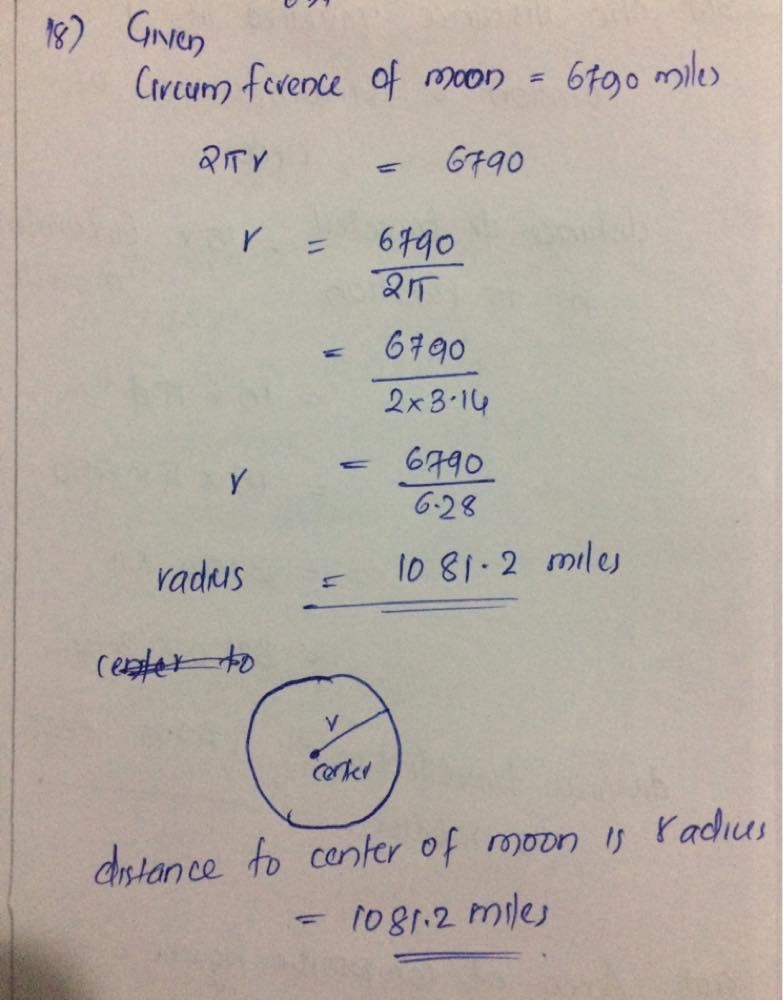 18) Given
Circumference of moon = 6790 miles
2πr = 6790
r = 6790
2π
= 6790
2×3.14
r = 6790
6.28
radius = 1081.2 miles
center to
r
center
distance to center of moon is radius
= 1081.2 miles